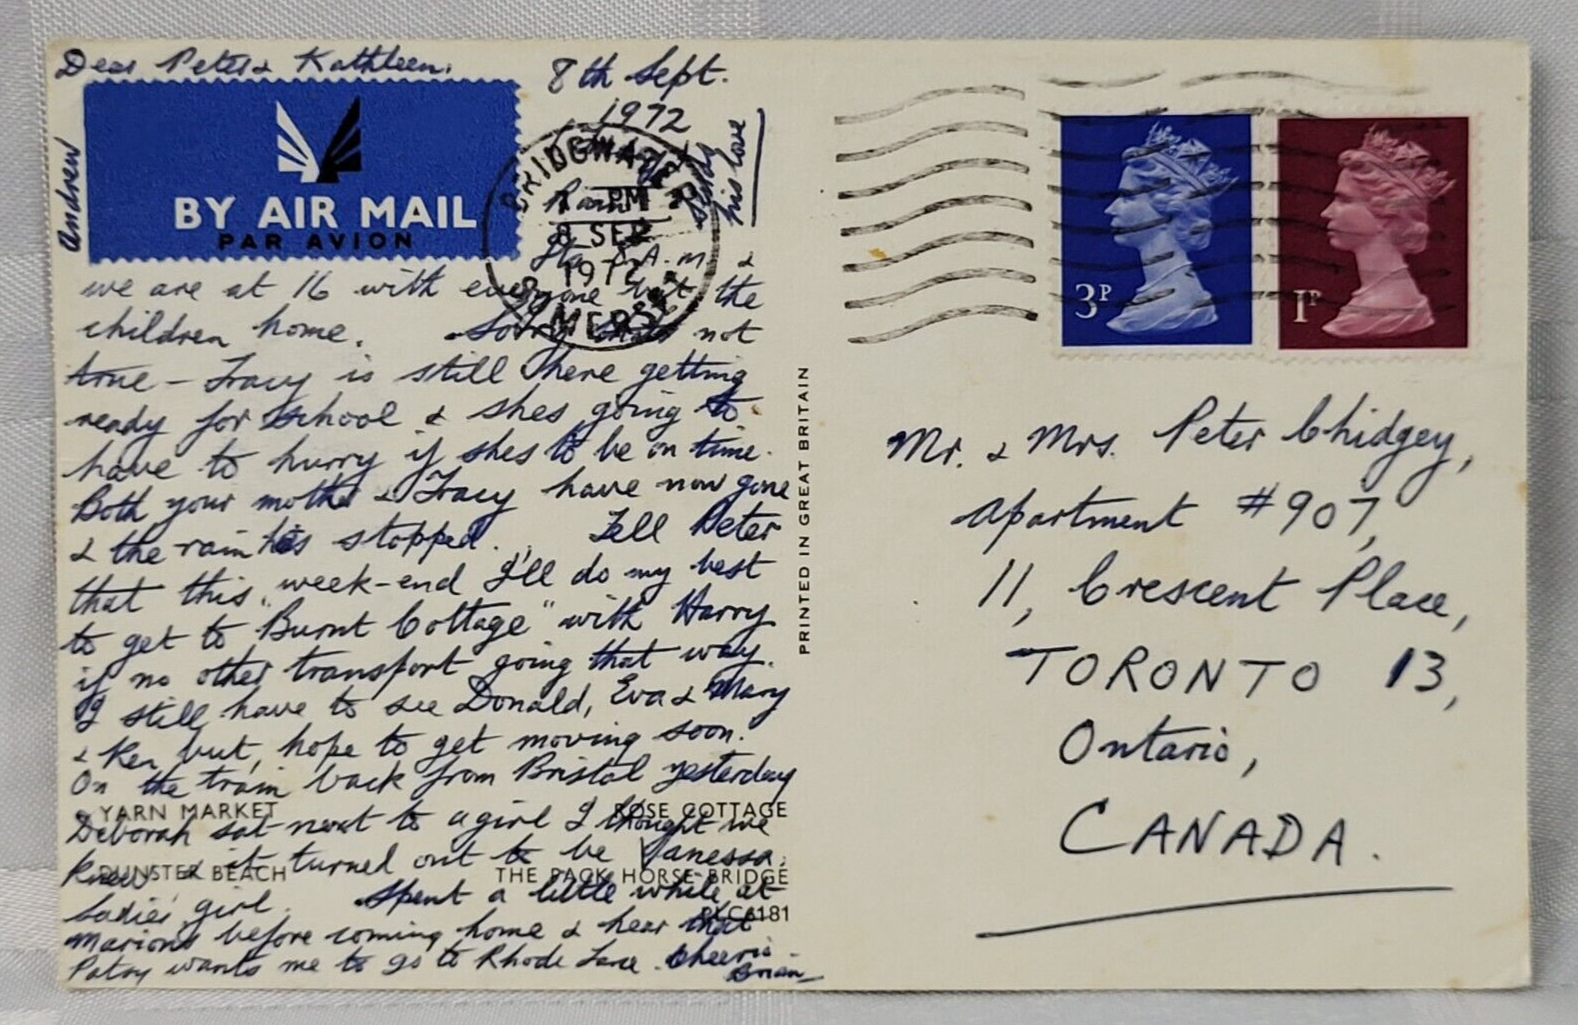 Dear Peter & Kathleen,
8th Sept.
1972
Andrew
sends
his love
BY AIR MAIL
PAR AVION
BRIDGWATER
PM
8 SEP
1972
Rain
A.M &
we are at 16 with everyone but the
children home. Sorry not
true - Tracy is still there getting
ready for school & shes going to
have to hurry if shes to be on time.
Both your mother & Tracy have now gone
& the rain has stopped. Tell Peter
that this week-end I'll do my best
to get to "Burnt Cottage" with Harry
if no other transport going that way.
I still have to see Donald, Eva & Mary
& Ken but, hope to get moving soon.
On the train back from Bristol yesterday
Deborah sat next to a girl I thought we
knew & it turned out to be Vanessa,
Sadie's girl. Spent a little while at
Marions before coming home & hear that
Patsy wants me to go to Rhode Lane. Cheerio
Brian
YARN MARKET
ROSE COTTAGE
DUNSTER BEACH
THE PACK HORSE BRIDGE
PLC6181
PRINTED IN GREAT BRITAIN
3P
1P
Mr. & Mrs. Peter Chidgey,
Apartment #907,
11, Crescent Place,
TORONTO 13,
Ontario,
CANADA.